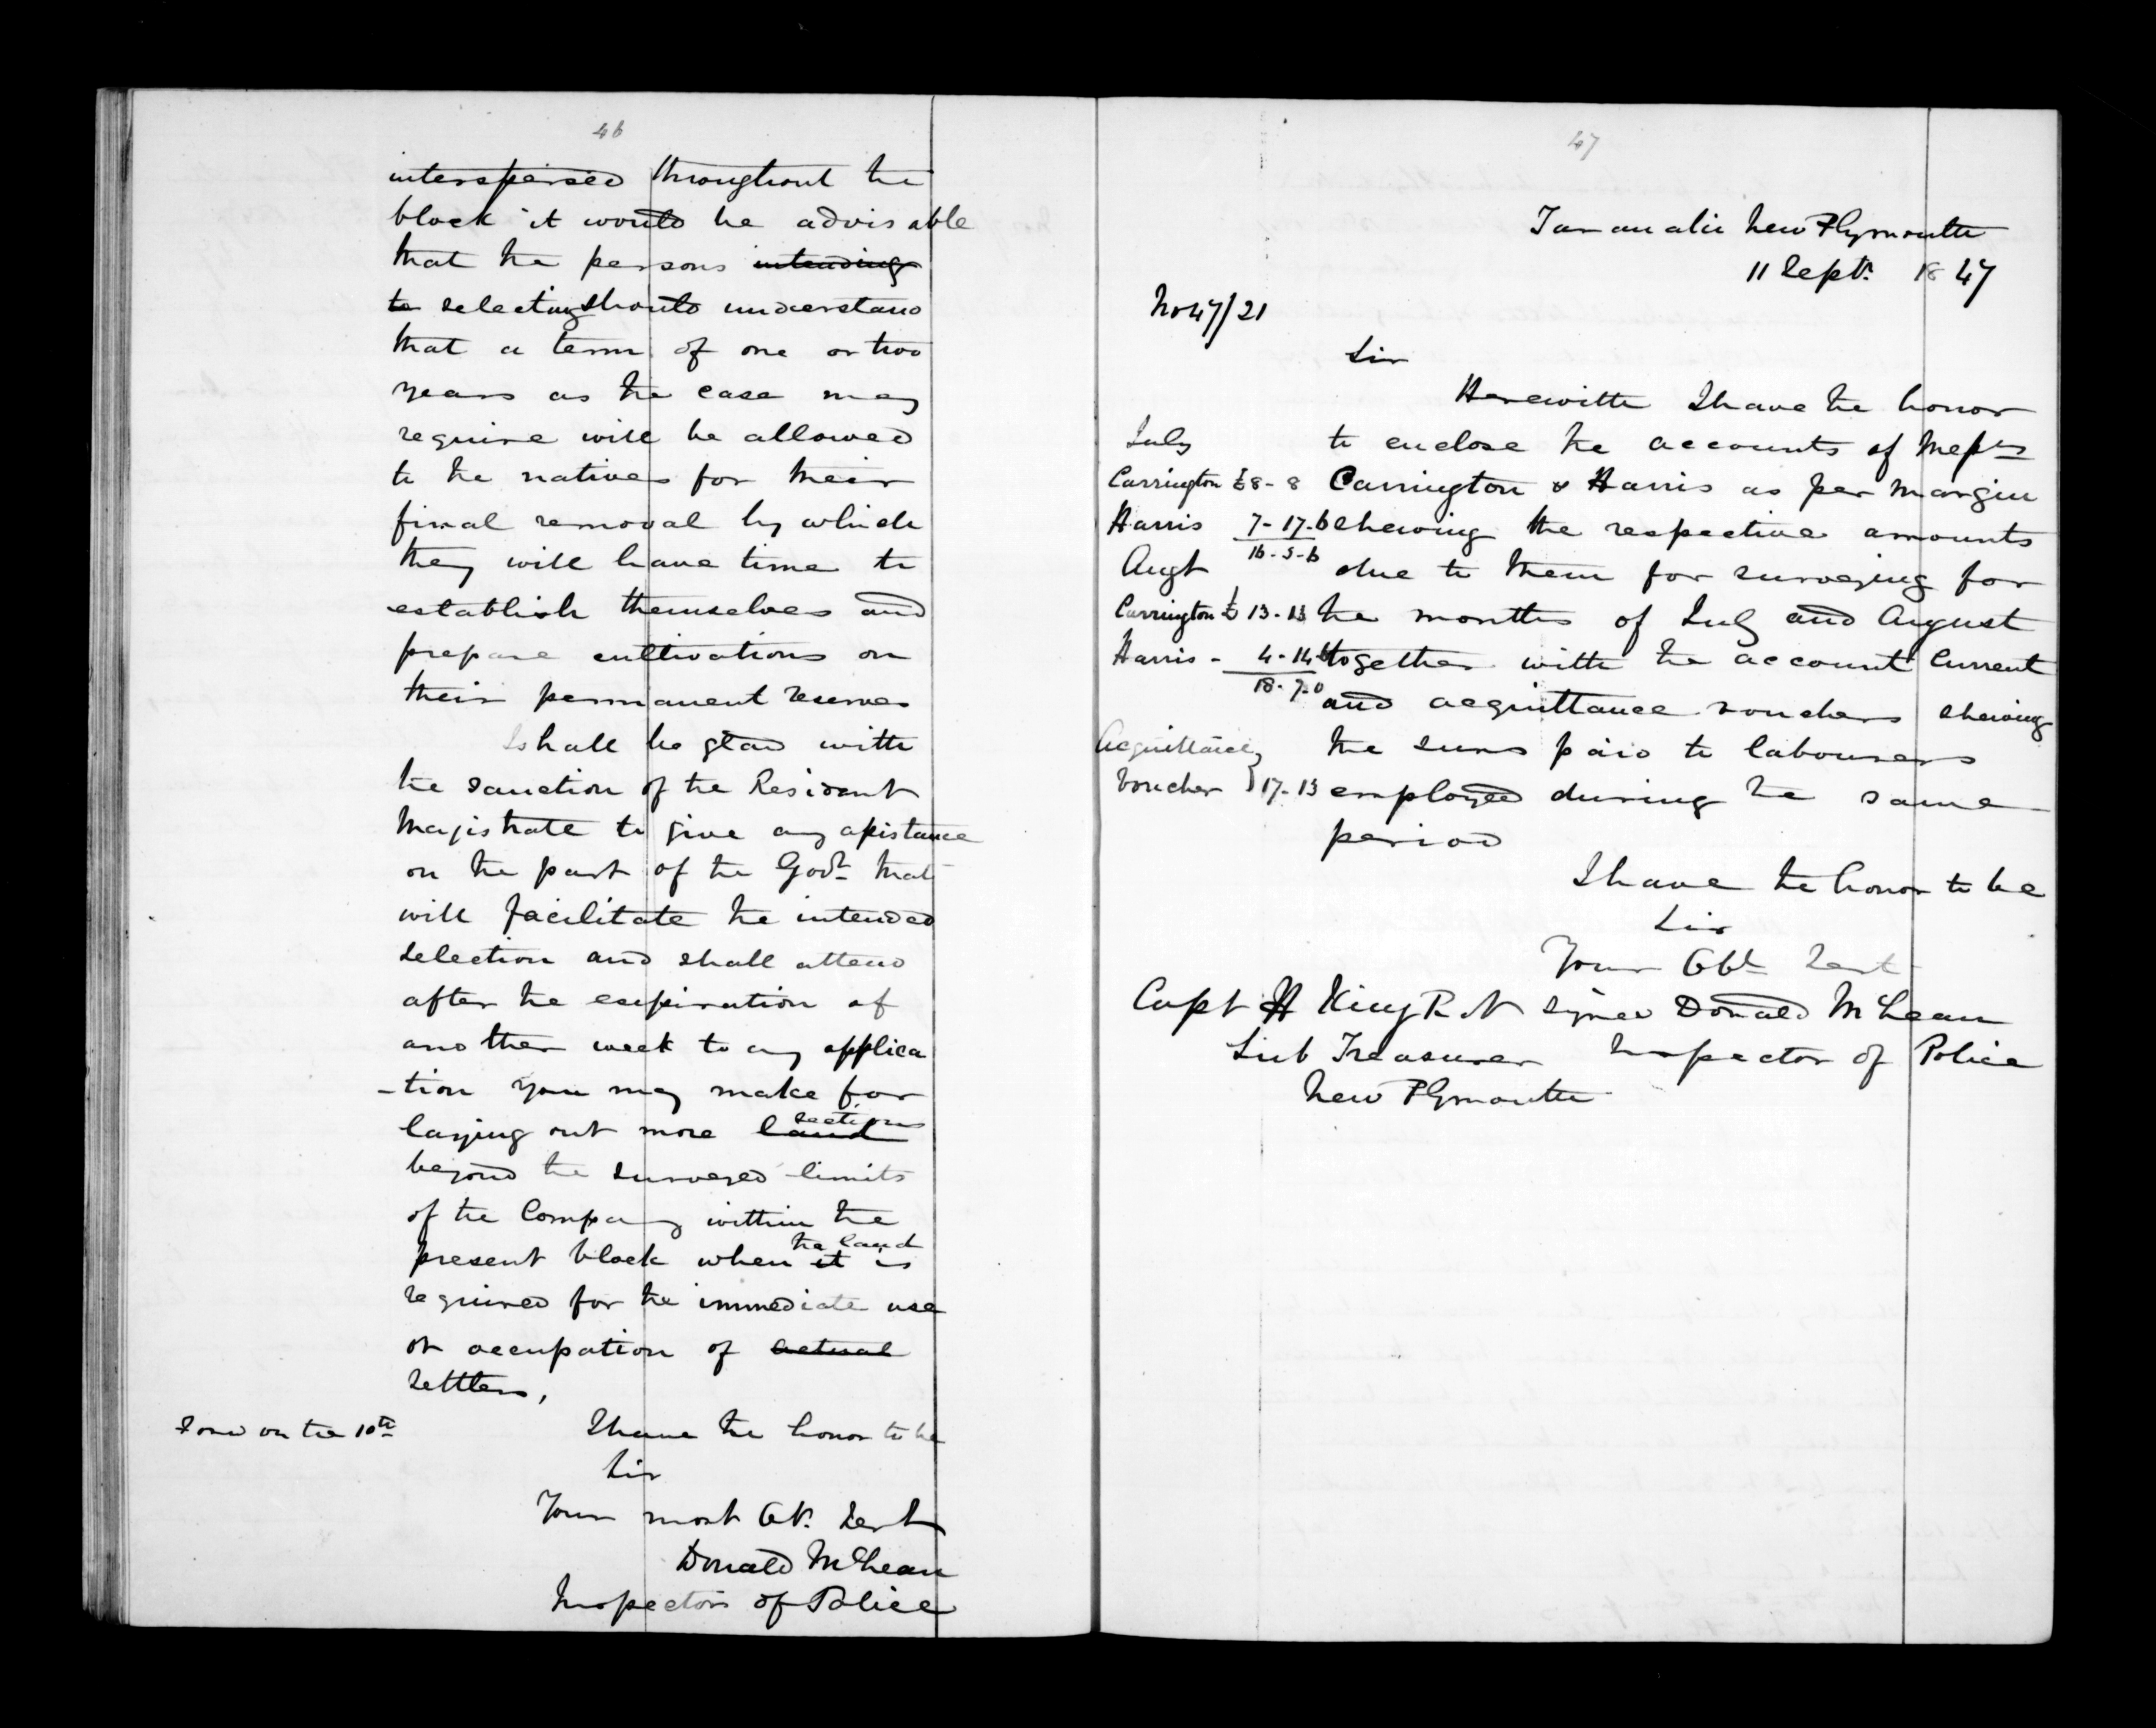 46
interspersed throughout the
block it would be advisable
that the persons intending
to selecting should understand
that a term of one or two
years as the case may
require will be allowed
to the natives for their
final removal by which
they will have time to
establish themselves and
prepare cultivations on
their permanent reserves
I shall be glad with
the sanction of the Resident
Magistrate to give any assistance
on the part of the Govt that
will facilitate the intended
selection and shall attend
after the expiration of
another week to any applica
-tion you may make for
laying out more land sections
beyond the surveyed limits
of the Company within the
present block when it the land is
required for the immediate use
or occupation of actual
settlers,
Ford on the 10th
I have the honor to be
Sir
Your most Obt. Servt
Donald McLean
Inspector of Police
47
Taranaki New Plymouth
11 Septr. 1847
No 47/21
Sir
Herewith I have the honor
to enclose the accounts of Messrs
Carrington & Harris as per margin
shewing the respective amounts
due to them for surveying for
the months of July and August
together with the account Current
and acquittance vouchers shewing
the sums paid to labourers
employed during the same
period
July
Carrington £8-8
Harris 7-17-6
16-5-6
Augt
Carrington £13-13
Harris - 4-14
18-7-0
Acquittance
Voucher } 17-13
I have the honor to be
Sir
Your Obt Servt
signed Donald McLean
Inspector of Police
Capt H King R N
Sub Treasurer
New Plymouth